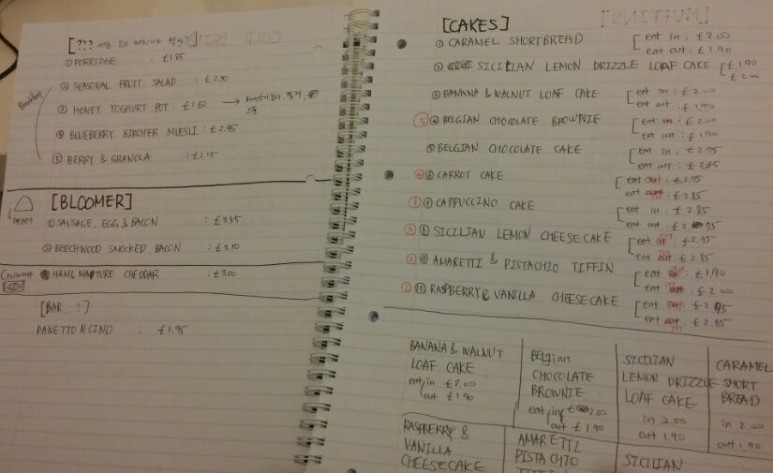 ① PORRIDGE : £1.85
② SEASONAL FRUIT SALAD : £2.90
③ HONEY YOGHURT POT : £1.80 →
④ BLUEBERRY BIRCHER MUESLI : £2.85
⑤ BERRY & GRANOLA : £2.45
[BLOOMER]
① SAUSAGE, EGG & BACON : £3.45
② BEECHWOOD SMOKED BACON : £3.10
HAM & MATURE CHEDDAR : £3.00
[BAR ...?]
PANETTONCINO : £1.95
[CAKES]
① CARAMEL SHORTBREAD [eat in : £2.00
eat out : £1.90
SICILIAN LEMON DRIZZLE LOAF CAKE [£1.90
£2.00
③ BANANA & WALNUT LOAF CAKE [eat in : £2.00
eat out : £1.90
④ BELGIAN CHOCOLATE BROWNIE [eat in : £2.00
eat out : £1.90
⑤ BELGIAN CHOCOLATE CAKE [eat in : £2.95
eat out : £2.85
CARROT CAKE [eat out : £2.95
eat : £2.85
CAPPUCCINO CAKE [eat in : £2.85
eat out : £2.
SICILIAN LEMON CHEESECAKE [eat in : £2.95
eat out : £2.85
AMARETTI & PISTACHIO TIFFIN [eat : £1.90
eat out : £2.00
RASPBERRY & VANILLA CHEESECAKE [eat out : £2.95
eat : £2.85
BANANA & WALNUT
LOAF CAKE
eat in £2.00
out £1.90
Belgian
CHOCOLATE
BROWNIE
eat in £2.00
out £1.90
SICILIAN
LEMON DRIZZLE
LOAF CAKE
in 2.00
out 1.90
CARAMEL
SHORT
BREAD
in 2.00
out 1.90
RASPBERRY &
VANILLA
CHEESECAKE
AMARETTI
PISTACHIO
SICILIAN